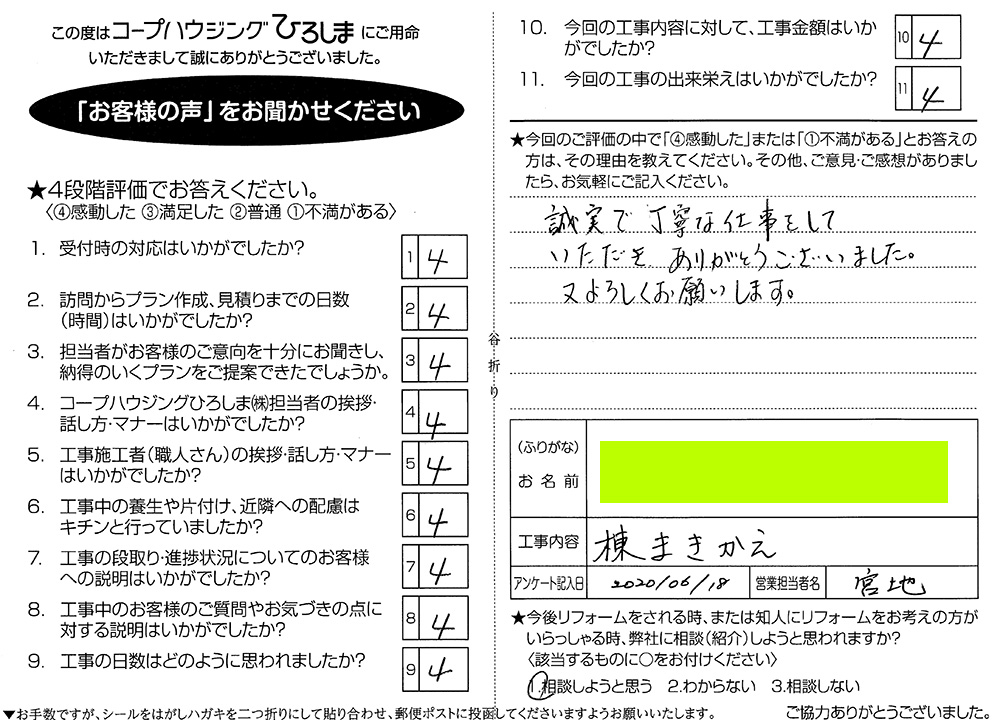 この度はコープハウジングひろしまにご用命
いただきまして誠にありがとうございました。
「お客様の声」をお聞かせください
★4段階評価でお答えください。
〈④感動した ③満足した ②普通 ①不満がある〉
1. 受付時の対応はいかがでしたか?
1 4
2. 訪問からプラン作成、見積りまでの日数
(時間)はいかがでしたか?
2 4
3. 担当者がお客様のご意向を十分にお聞きし、
納得のいくプランをご提案できたでしょうか。
3 4
4. コープハウジングひろしま㈱担当者の挨拶・
話し方・マナーはいかがでしたか?
4 4
5. 工事施工者(職人さん)の挨拶・話し方・マナー
はいかがでしたか?
5 4
6. 工事中の養生や片付け、近隣への配慮は
キチンと行っていましたか?
6 4
7. 工事の段取り・進捗状況についてのお客様
への説明はいかがでしたか?
7 4
8. 工事中のお客様のご質問やお気づきの点に
対する説明はいかがでしたか?
8 4
9. 工事の日数はどのように思われましたか?
9 4
▼お手数ですが、シールをはがしハガキを二つ折りにして貼り合わせ、郵便ポストに投函してくださいますようお願いいたします。
谷折り
10. 今回の工事内容に対して、工事金額はいか
がでしたか?
10 4
11. 今回の工事の出来栄えはいかがでしたか?
11 4
★今回のご評価の中で「④感動した」または「①不満がある」とお答えの
方は、その理由を教えてください。その他、ご意見・ご感想がありまし
たら、お気軽にご記入ください。
誠実で丁寧な仕事をして
いただき、ありがとうございました。
又よろしくお願いします。
(ふりがな)
お名前
工事内容 棟まきかえ
アンケート記入日 2020/06/18 営業担当者名 宮地
★今後リフォームをされる時、または知人にリフォームをお考えの方が
いらっしゃる時、弊社に相談(紹介)しようと思われますか?
〈該当するものに○をお付けください〉
1.相談しようと思う 2.わからない 3.相談しない
ご協力ありがとうございました。